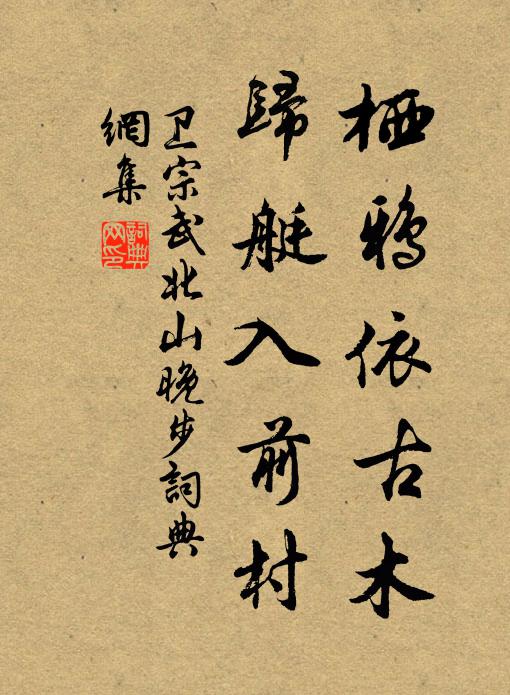 栖鸦依古木
歸艇入前村
卫宗武北山晚步詞典
網集
詞典
网印